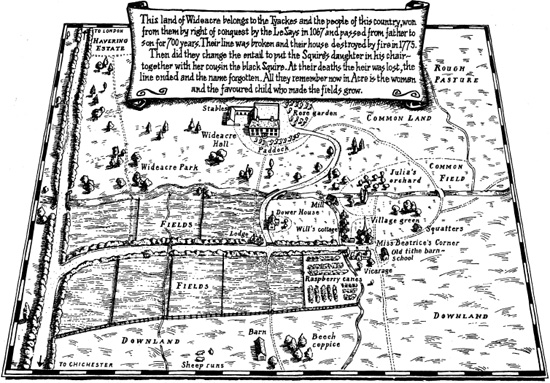 This land of Wideacre belongs to the Tyackes and the people of this country, won
from them by right of conquest by the Le Says in 1067 and passed from father to
son for 700 years. Their line was broken and their house destroyed by fire in 1773.
Then did they change the entail to put the Squire's daughter in his chair-
together with her cousin the black Squire. At their deaths the heir was lost, the
line ended and the name forgotten. All they remember now in Acre is the woman
and the favoured child who made the fields grow.
TO LONDON
HAVERING
ESTATE
ROUGH
PASTURE
Stables
Rose garden
COMMON LAND
Wideacre
Hall
Paddock
Wideacre Park
COMMON
FIELD
Julia's
orchard
Mill
Dower House
Village green
FIELDS
Will's cottage
Squatters
Lodge
Miss Beatrice's Corner
Old tithe barn-
School
Vicarage
FIELDS
Raspberry canes
DOWNLAND
Barn
Beech
coppice
DOWNLAND
TO CHICHESTER
Sheep runs